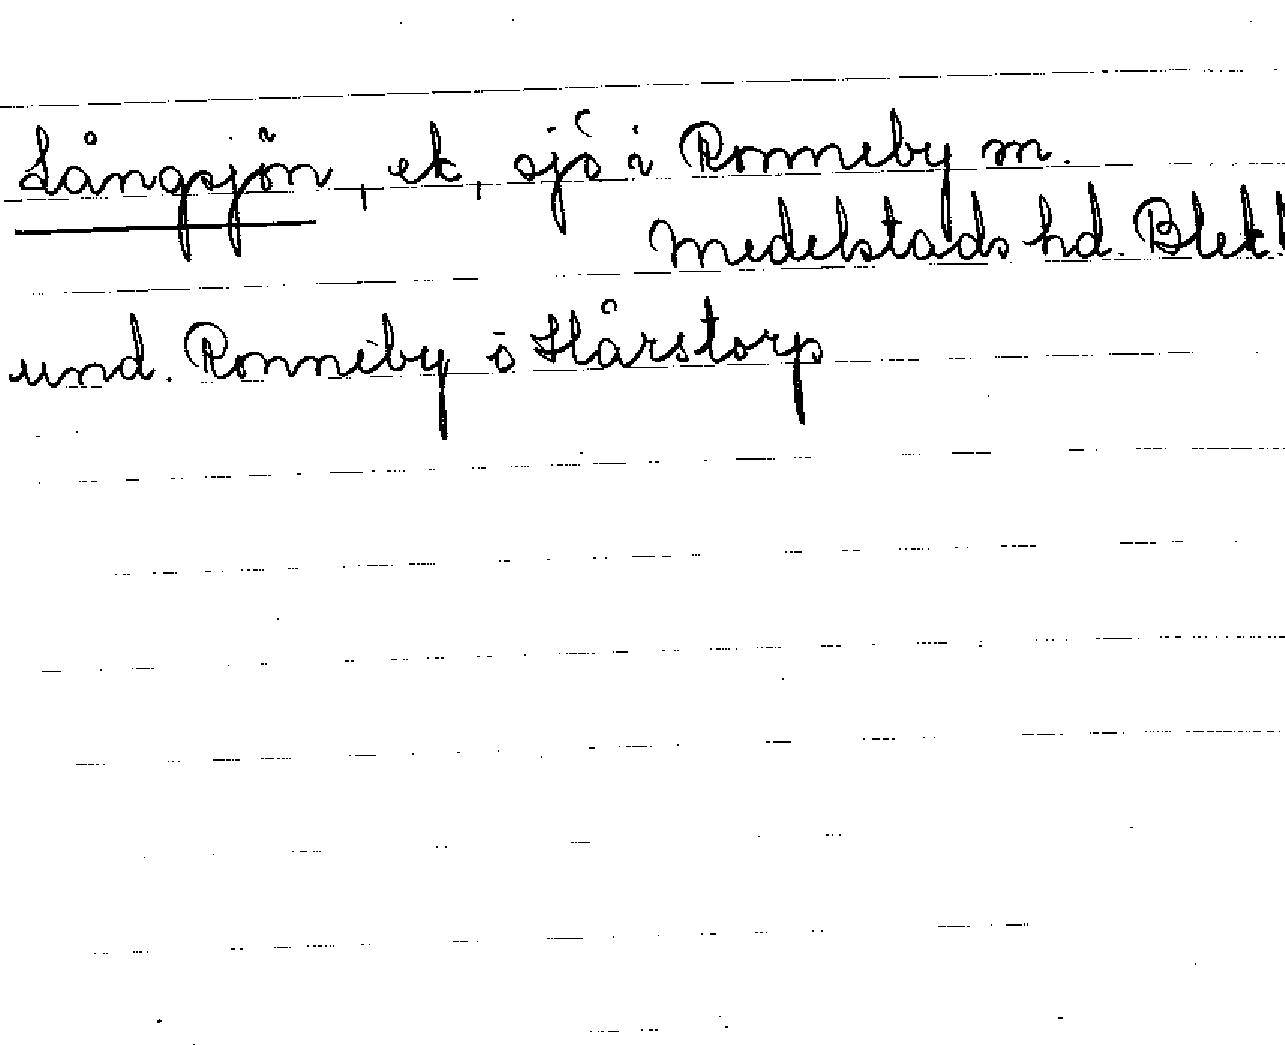 Långsjön, ek, sjö i Ronneby m.
Medelstads hd. Blek
und. Ronneby o Hårstorp